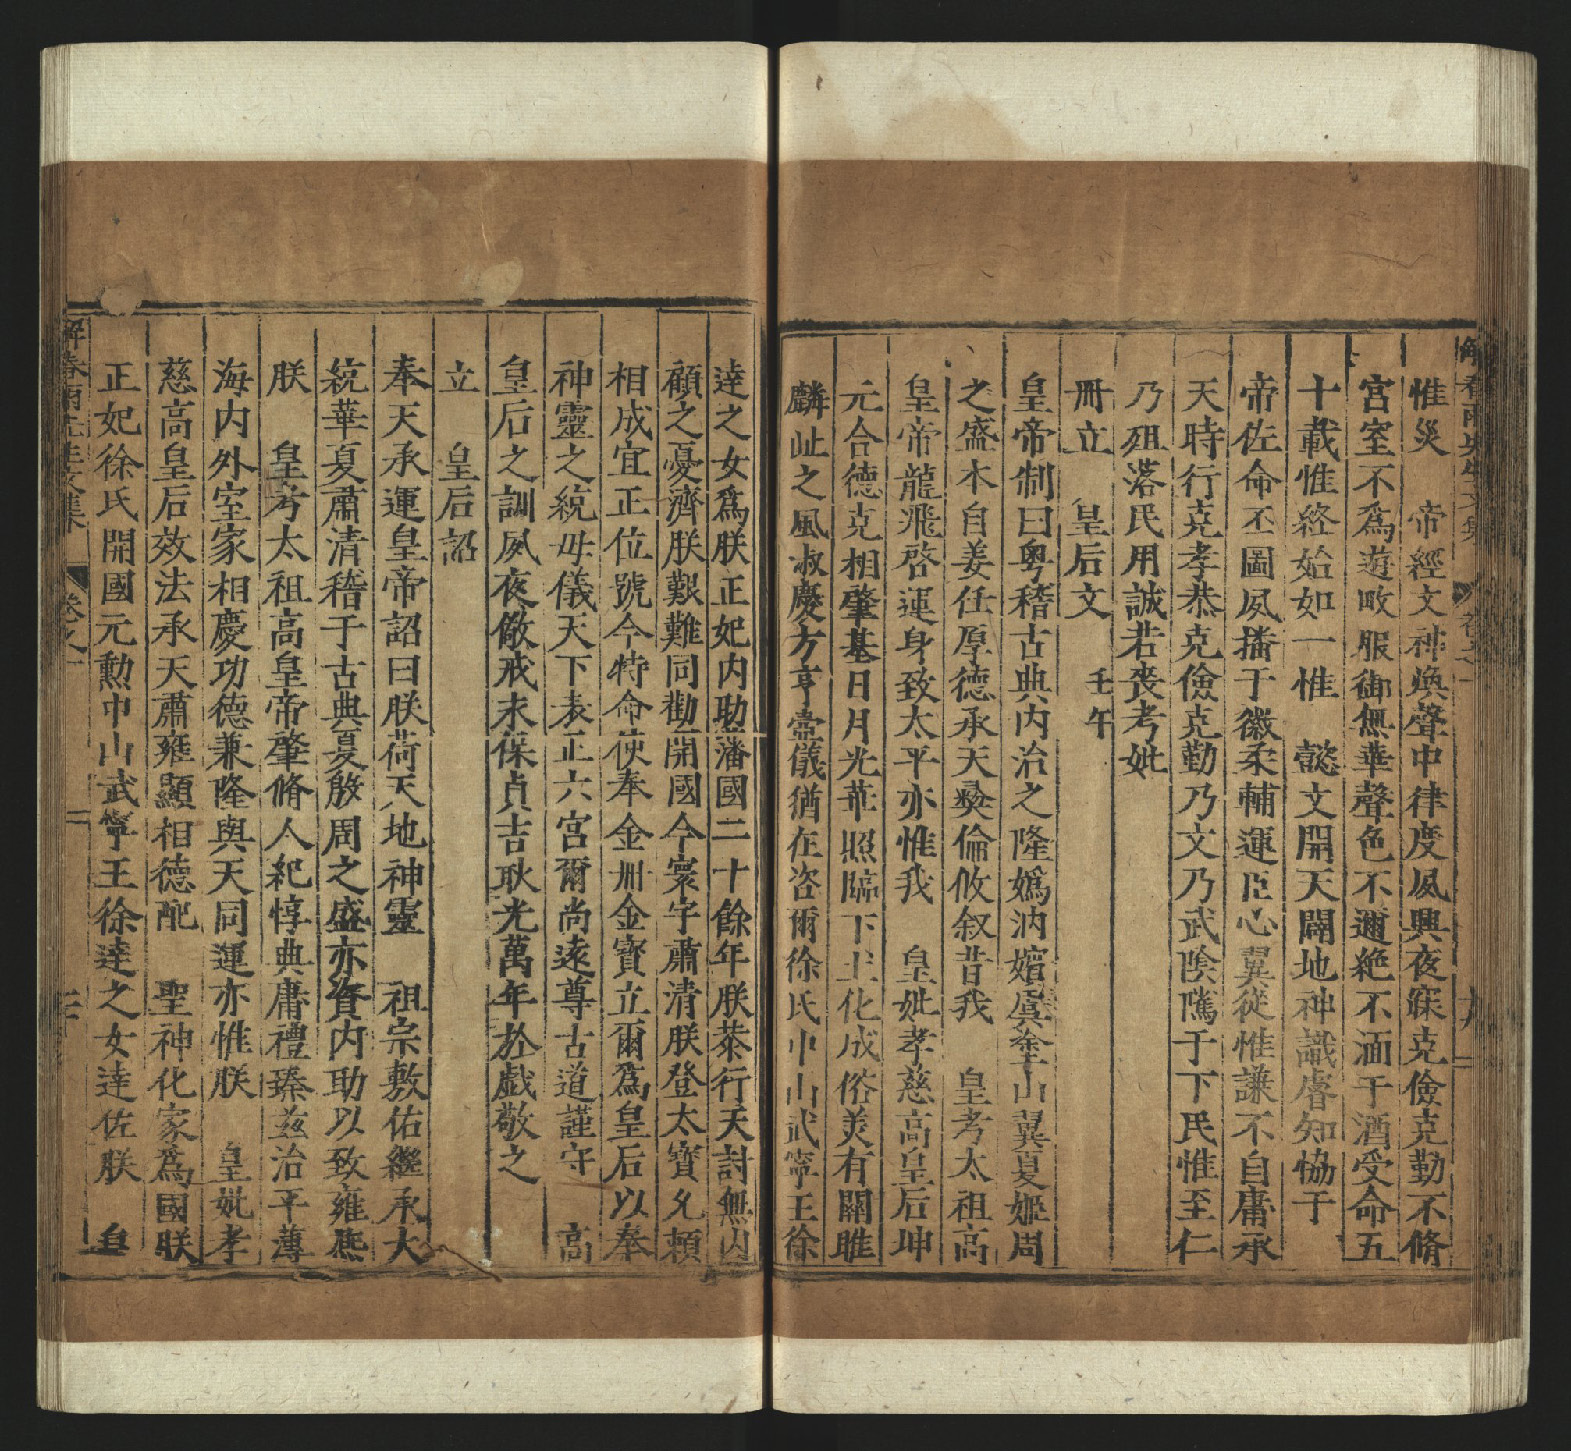 解春雨先生文集 卷之一
惟災 帝經文神煥聲中律度夙興夜寐克儉克勤不脩
宮室不爲遊畋服御無華聲色不邇絶不湎于酒受命五
十載惟終始如一惟 懿文開天闢地神識睿知恊于
帝佐命丕圖夙播于徽柔輔運臣心翼從惟謙不自庸承
天時行克孝恭克儉克勤乃文乃武陰隲于下民惟至仁
乃殂落民用誠若喪考妣
冊立 皇后文 壬午
皇帝制曰粤稽古典内治之隆嬀汭嬪虞塗山翼夏姬周
之盛本自姜任厚德承天彜倫攸叙昔我 皇考太祖高
皇帝龍飛啓運身致太平亦惟我 皇妣孝慈高皇后坤
元合德克相肇基日月光華照臨下土化成俗美有關雎
麟趾之風淑慶方亨當儀猶在咨爾徐氏中山武寧王徐
逹之女爲朕正妃内助藩國二十餘年朕恭行天討無内
顧之憂濟朕艱難同勸開國今寰宇肅清朕登太寶允頼
相成宜正位號今特命使奉金冊金寳立爾爲皇后以奉
神靈之統毋儀天下表正六宫爾尚遠尊古道謹守 高
皇后之訓夙夜儆戒末保貞吉耿光萬年於戲敬之
立 皇后詔
奉天承運皇帝詔曰朕荷天地神靈 祖宗敷佑繼承大
統華夏肅清稽于古典夏殷周之盛亦資内助以致雍熈
朕 皇考太祖高皇帝肇脩人紀惇典庸禮臻兹治平薄
海内外室家相慶功德兼隆與天同運亦惟朕 皇妣孝
慈高皇后效法承天肅雍顯相德配 聖神化家爲國朕
正妃徐氏開國元勲中山武寧王徐逹之女逹佐朕 皇
解春雨先生文集 卷之一